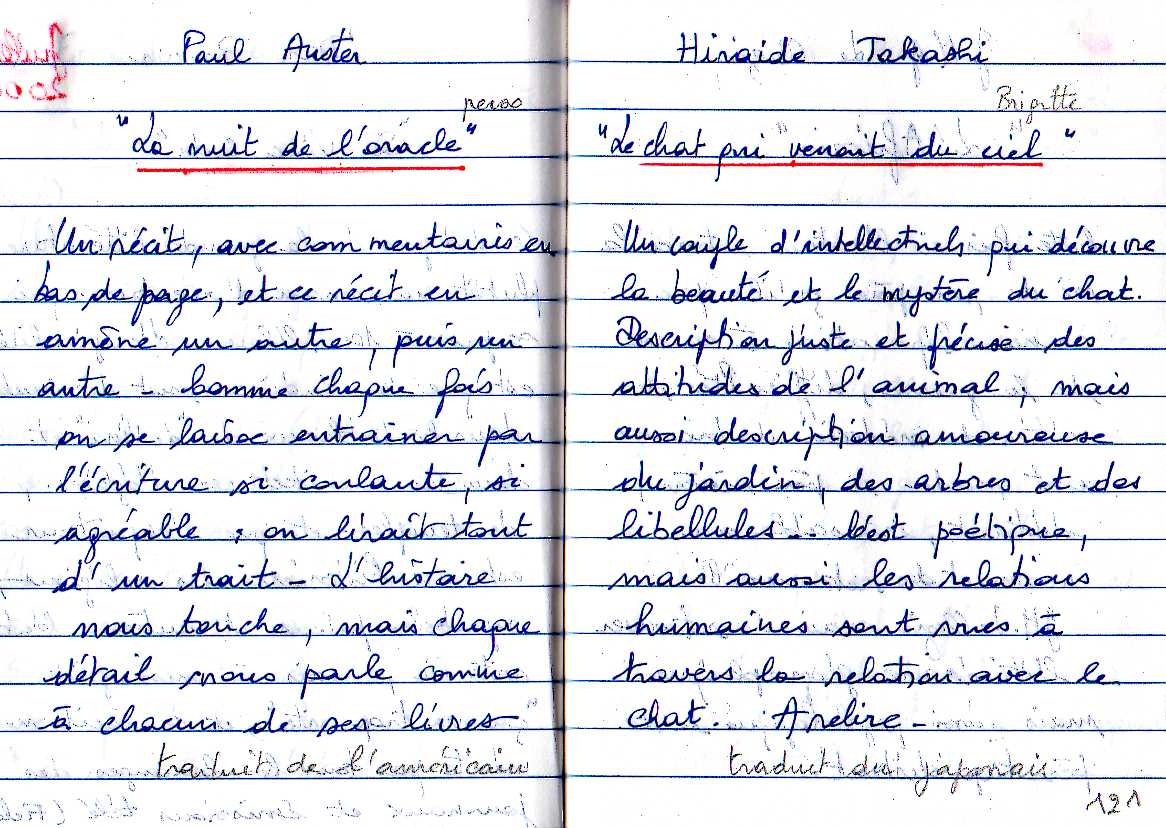 Paul Auster
perso
"La nuit de l'oracle"
Un récit, avec commentaires en
bas de page, et ce récit en
amène un autre, puis un
autre - Comme chaque fois
on se laisse entrainer par
l'écriture si coulante, si
agréable ; on lirait tout
d'un trait - L'histoire
nous touche, mais chaque
détail nous parle comme
à chacun de ses livres
traduit de l'américain
Hiraide Takashi
Brigitte
"Le chat qui venait du ciel"
Un couple d'intellectuels qui découvre
la beauté et le mystère du chat.
Description juste et précise des
attitudes de l'animal, mais
aussi description amoureuse
du jardin, des arbres et des
libellules... C'est poétique,
mais aussi les relations
humaines sont vues à
travers la relation avec le
chat. A relire -
traduit du japonais
121